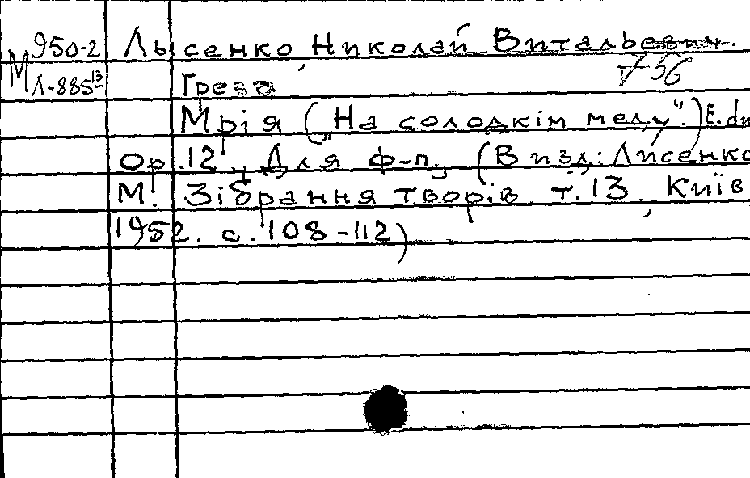 М 950-2 Лысенко, Николай Витальевич.
Л-885¹³ Греза 756
Мрія ("На солодкім меду".) E.du
Op. 12. Для ф-п. (В изд.: Лисенко
М. Зібрання творів. т. 13. Київ,
1952. с. 108-112)